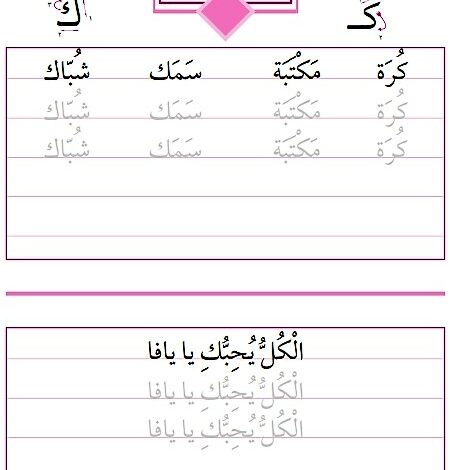 كـ ك
كُرَة مَكْتَبَة سَمَك شُبّاك
كُرَة مَكْتَبَة سَمَك شُبّاك
كُرَة مَكْتَبَة سَمَك شُبّاك
الْكُلُّ يُحِبُّكِ يا يافا
الْكُلُّ يُحِبُّكِ يا يافا
الْكُلُّ يُحِبُّكِ يا يافا